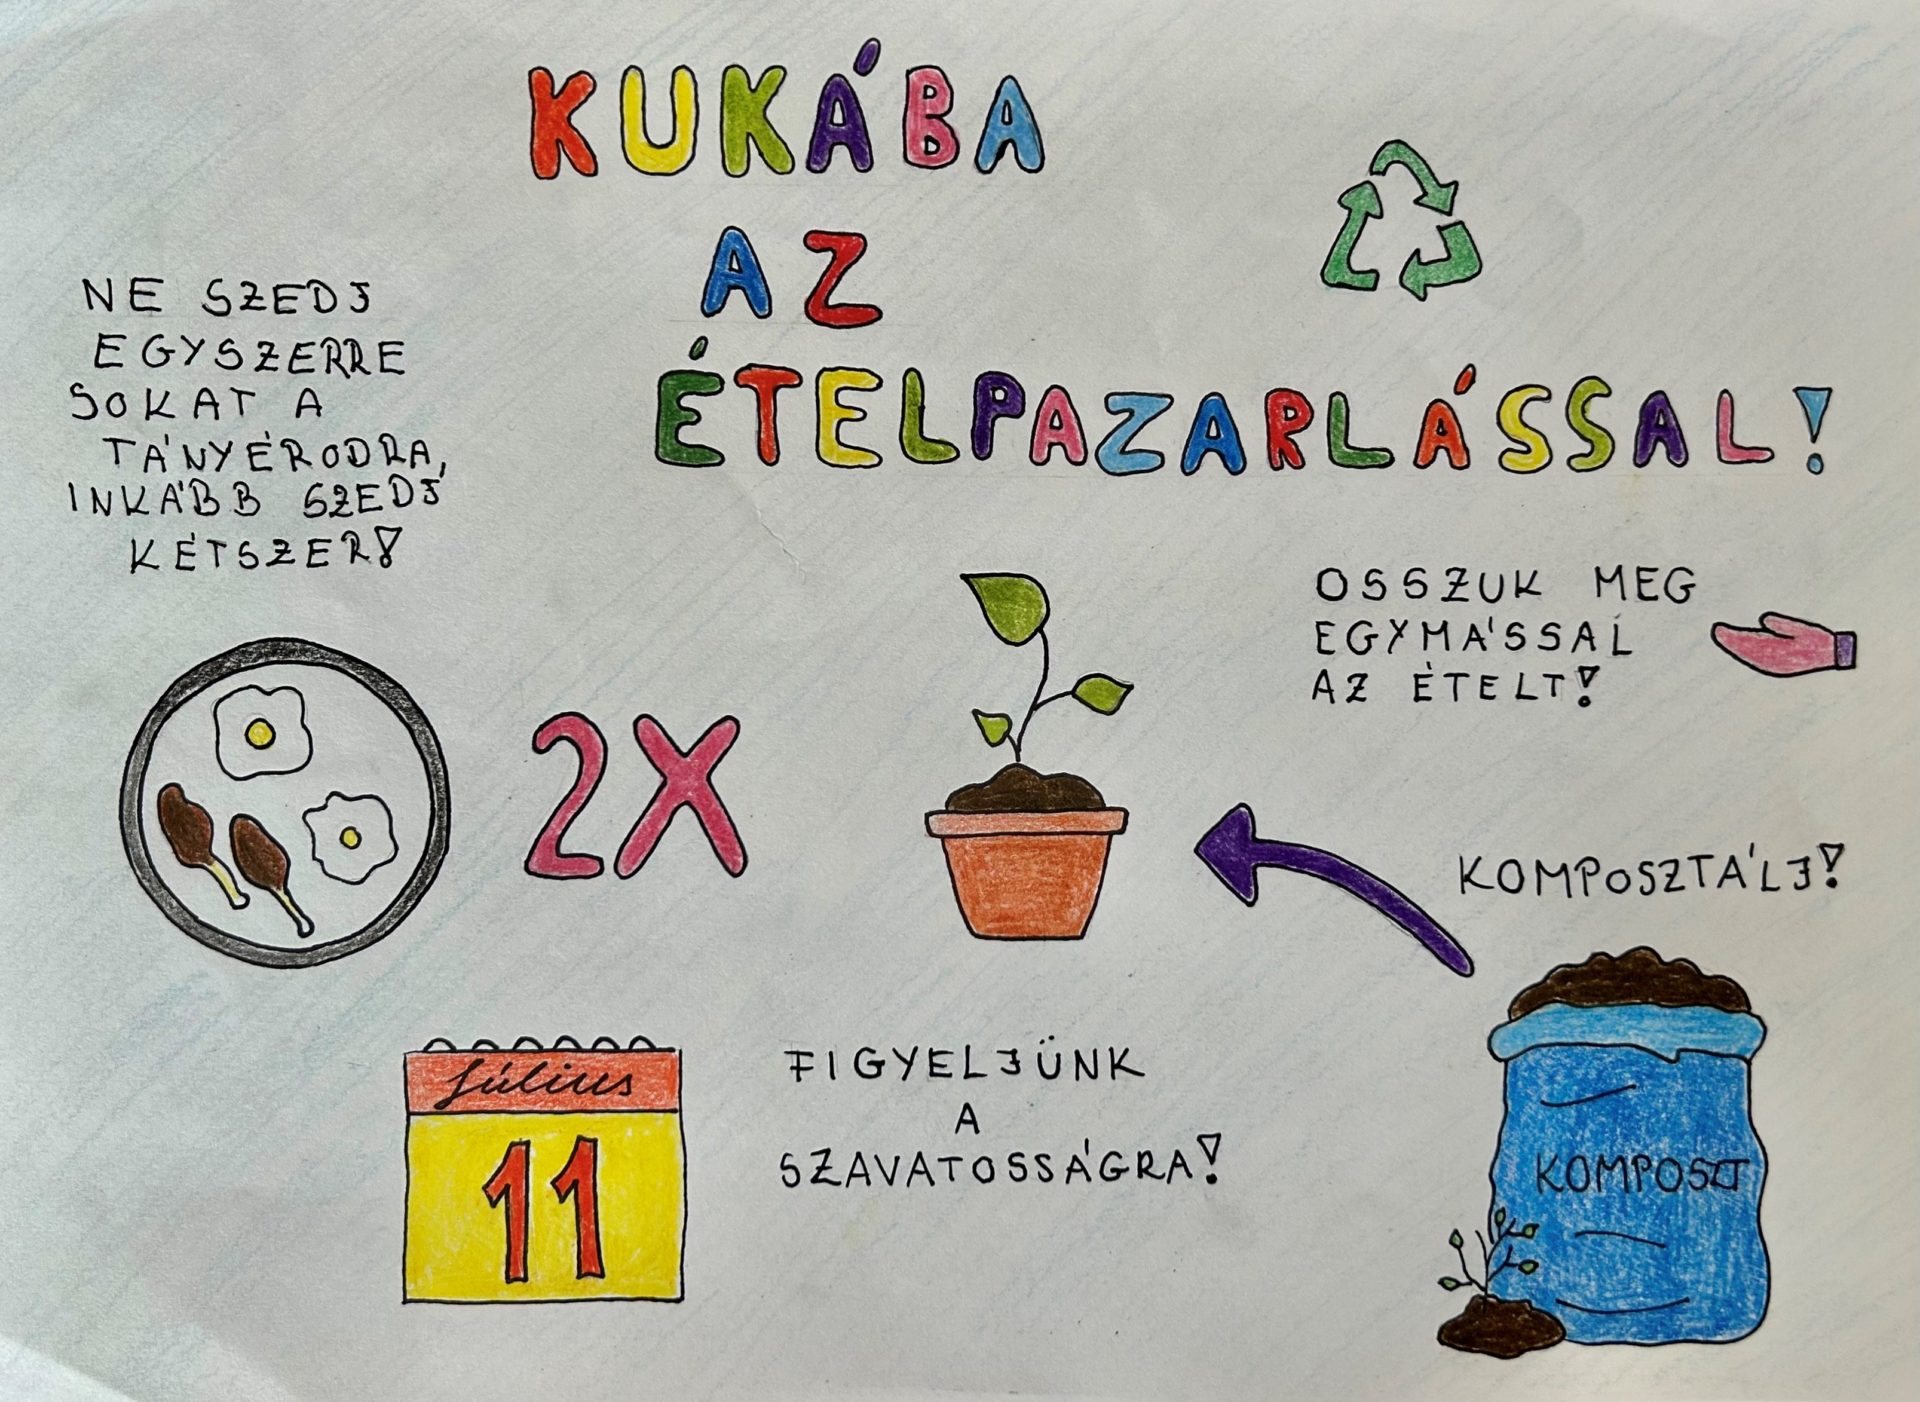 KUKÁBA
AZ
ÉTELPAZARLÁSSAL!
NE SZEDJ
EGYSZERRE
SOKAT A
TÁNYÉRODRA,
INKÁBB SZEDJ
KÉTSZER!
OSSZUK MEG
EGYMÁSSAL
AZ ÉTELT!
2X
KOMPOSZTÁLJ!
KOMPOSZT
Július
11
FIGYELJÜNK
A
SZAVATOSSÁGRA!